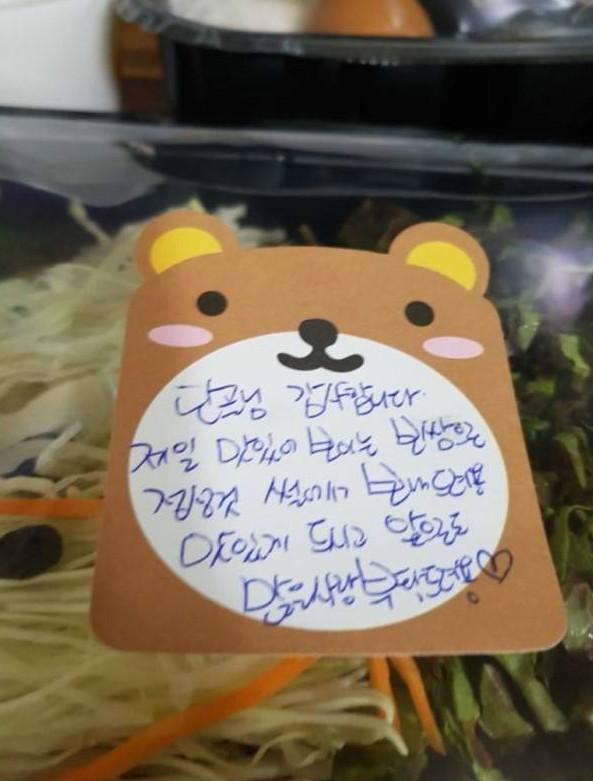 단골님 감사합니다.
제일 맛있어 보이는 부분으로
썰어서 보내드려용
맛있게 드시고 앞으로도
많은사랑 부탁드려요!♡